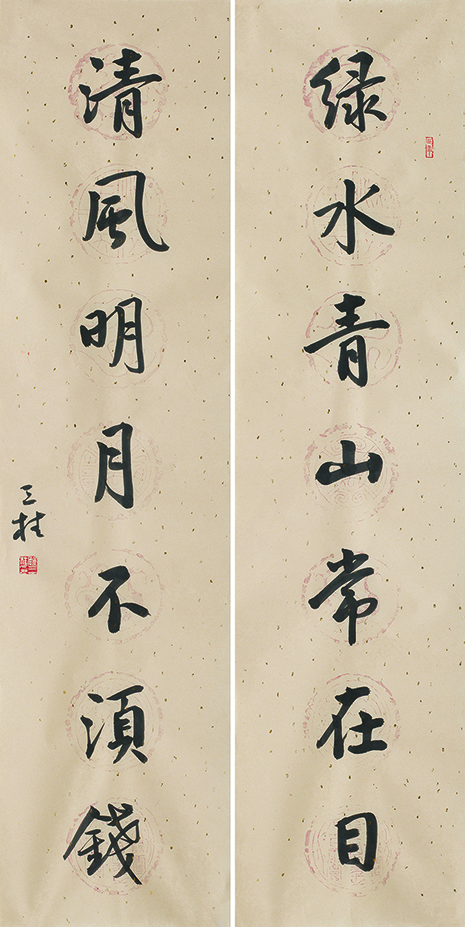 绿水青山常在目
清風明月不湏錢
三桂